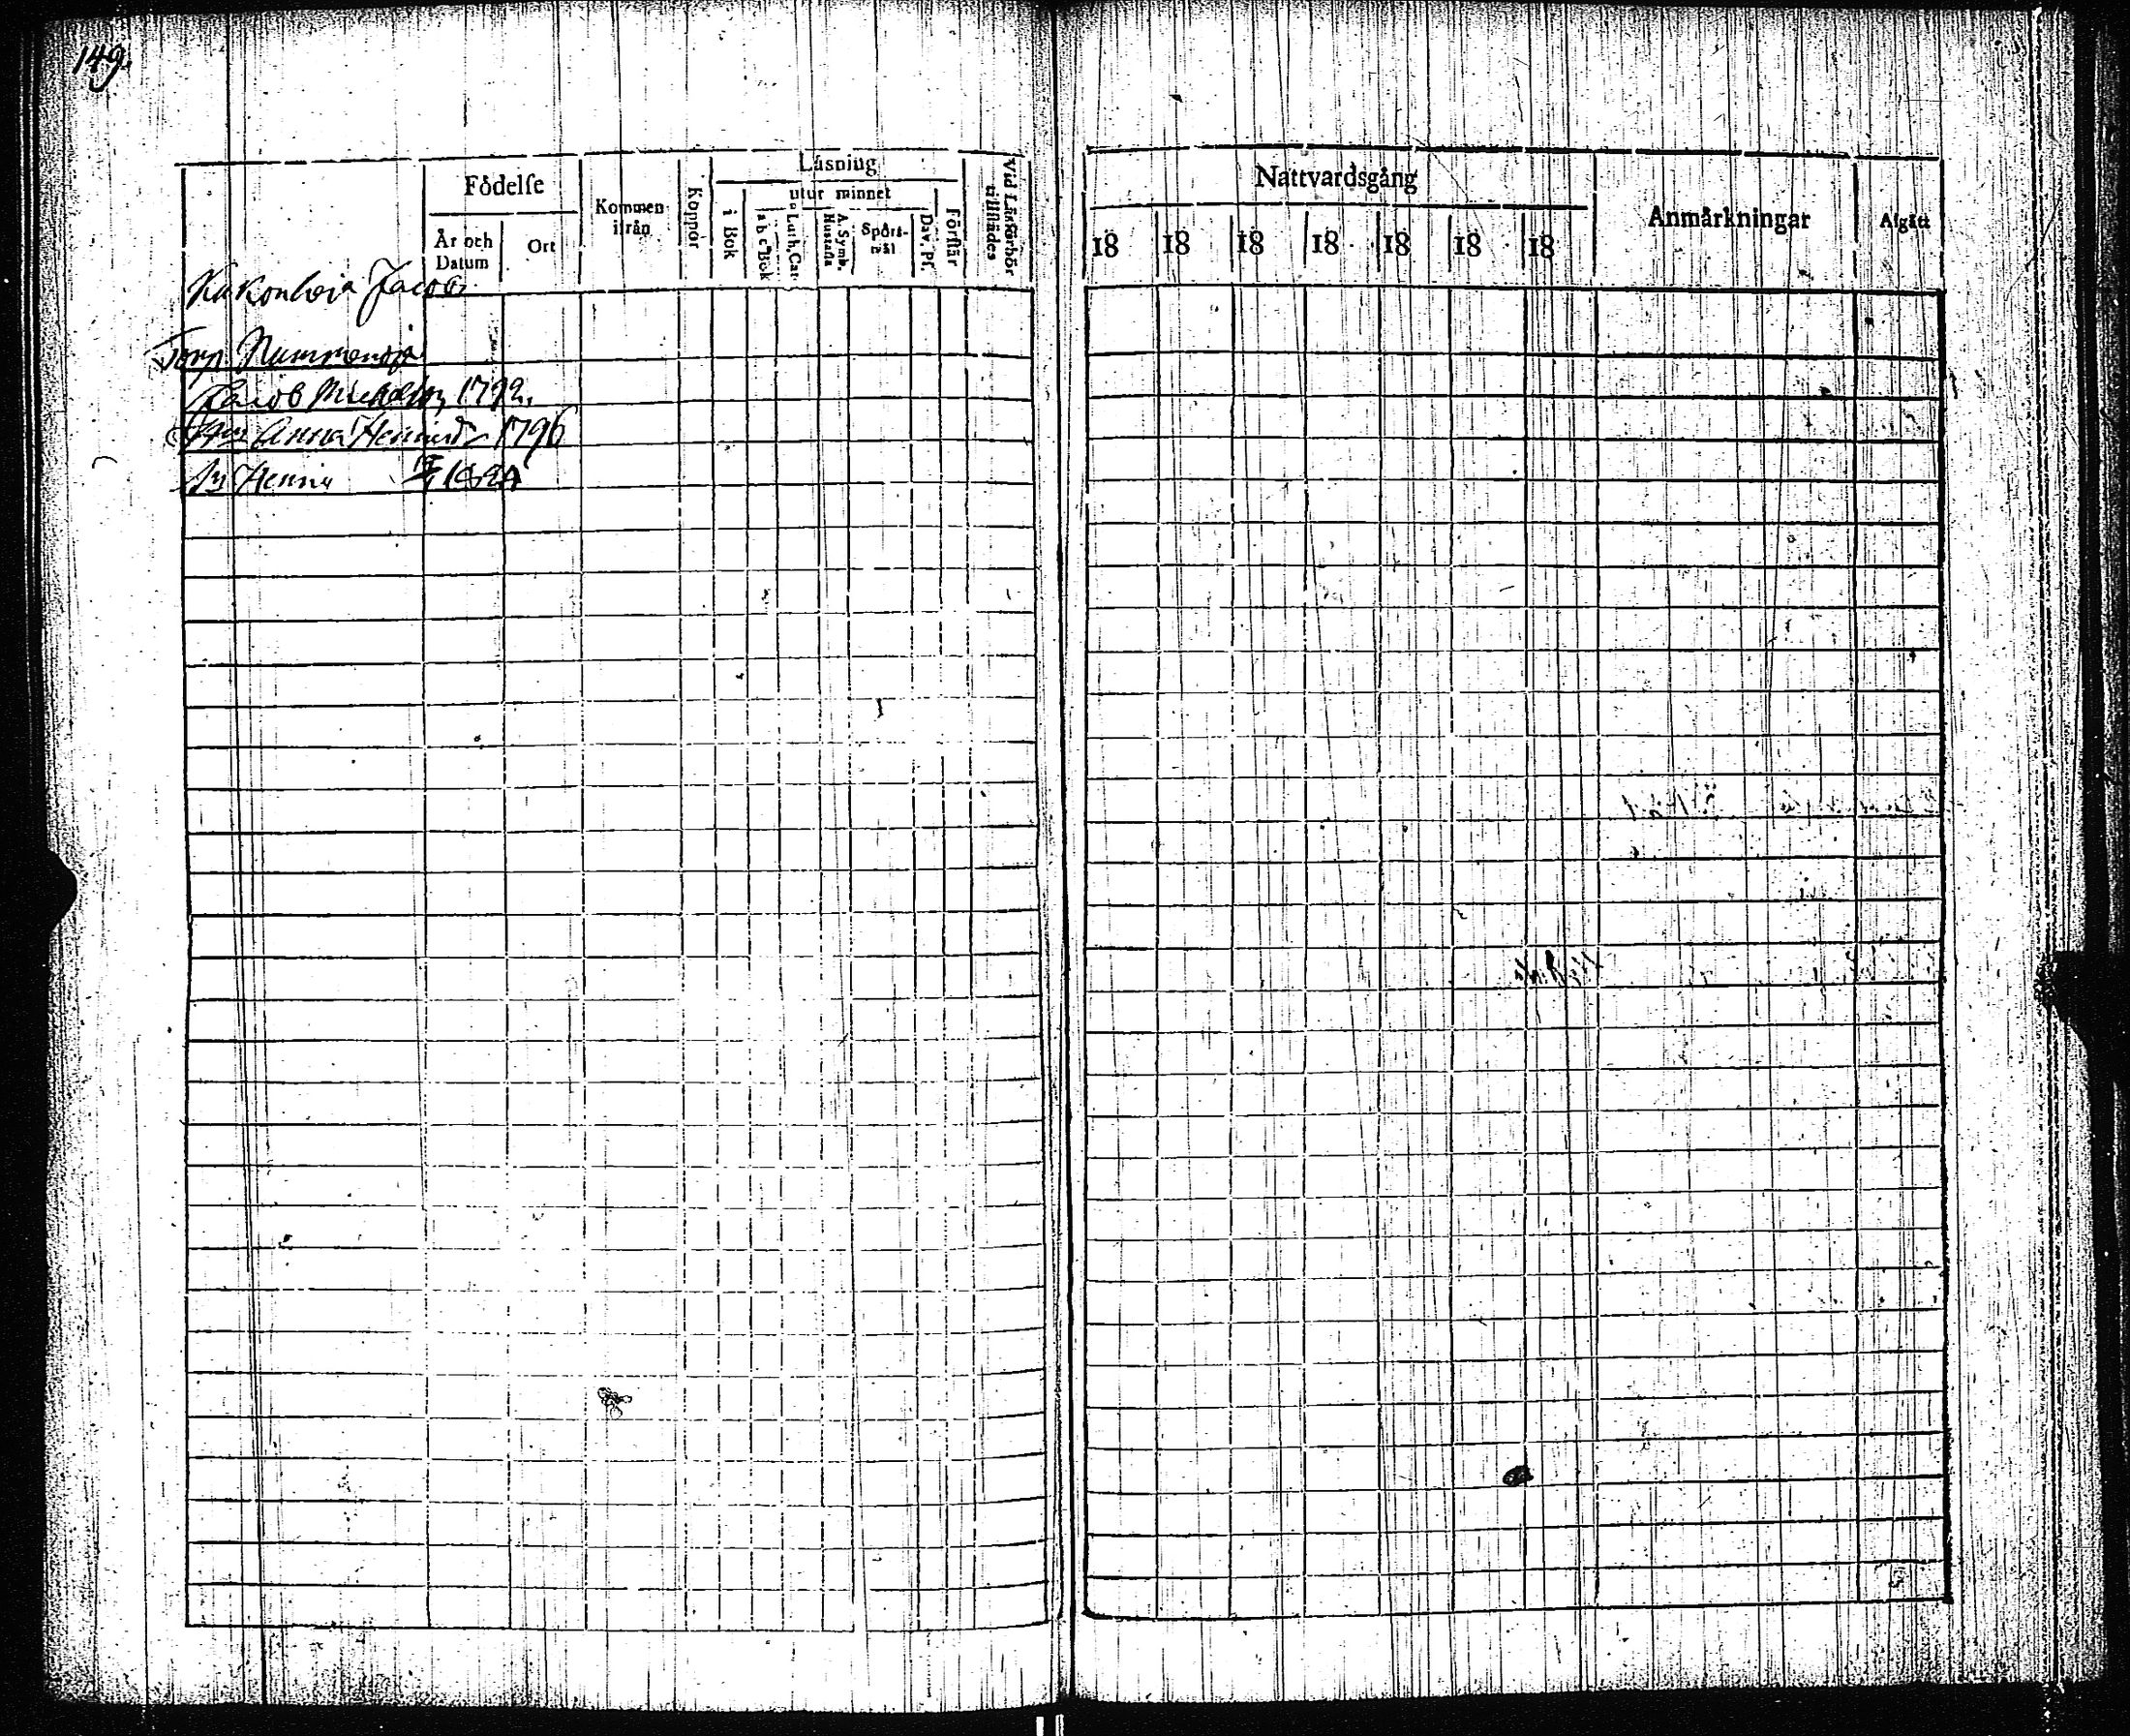 149.
Födelse
Kommen ifrån
Koppor
Läsning
utur minnet
Vid Läsförhör tillstädes
År och Datum
Ort
i Bok
a b c Bok
Luth. Cat.
A. Symb. Hustafla
Spörs-mål
Dav. Ps.
Förstår
Nattvardsgång
Anmärkningar
Afgått
18 18 18 18 18 18 18
Jacob
Torp. Nummenoja
Jacob Michelss 1792.
Anna Henricsdr 1796
1824